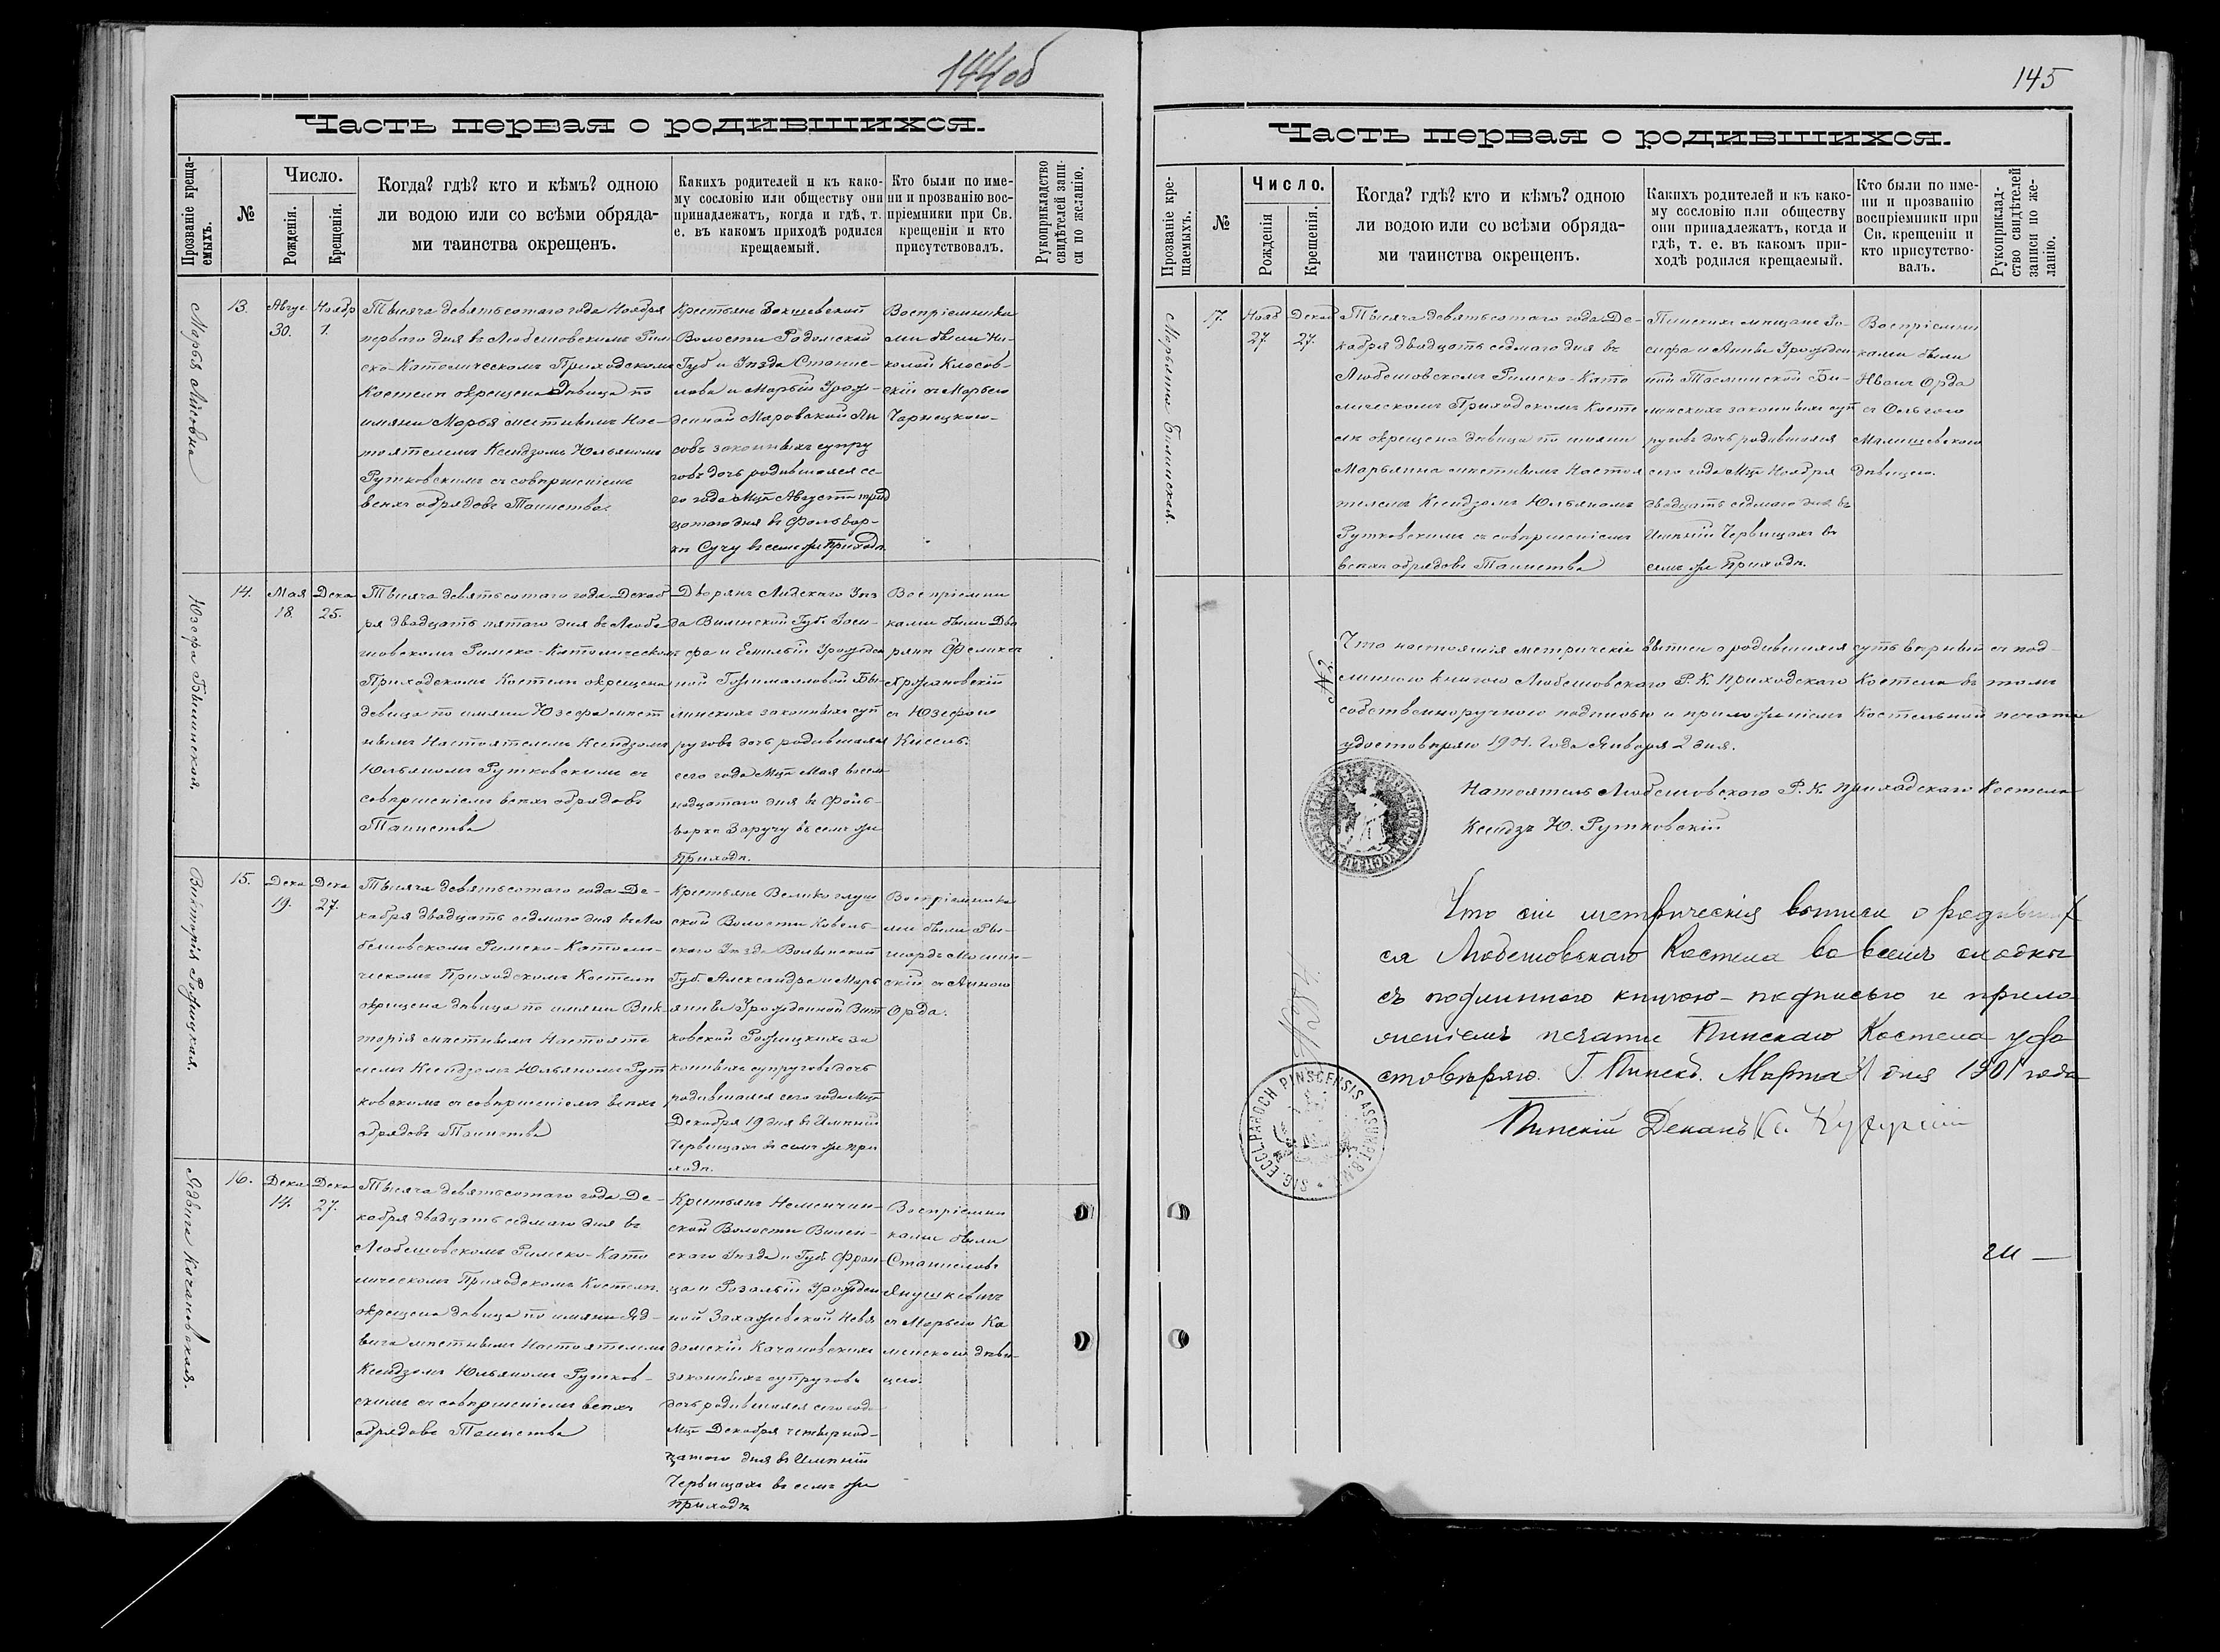 144 об
Часть первая о родившихся.
Прозваніе креща-
емыхъ.
№
Число.
Рожденія.
Крещенія.
Когда? гдѣ? кто и кѣмъ? одною
ли водою или со всѣми обряда-
ми таинства окрещенъ.
Какихъ родителей и къ како-
му сословію или обществу они
принадлежатъ, когда и гдѣ, т.
е. въ какомъ приходѣ родился
крещаемый.
Кто были по име-
ни и прозванію вос-
пріемники при Св.
крещеніи и кто
присутствовалъ.
Рукоприкладство
свидѣтелей запи-
си по желанію.
Марья
13.
Авгус.
30.
Ноябр
1.
Тысяча девятьсотаго года Ноября
перваго дня въ Любешовскомъ Рим
ско-Католическомъ Приходскомъ
Костелѣ окрещена Дѣвица по
имяни Марья мѣстнымъ Нас-
тоятелемъ Ксендзомъ Юльяномъ
Рутковскимъ съ совершеніемъ
всехъ обрядовъ Таинства
Крестьянъ
Волости Радомской
Губ и Уезда Станис-
лава и Марьи Урож-
денной
совъ законныхъ супру
говъ дочь родившаяся се
го года Мца Августа трид
цатаго дня въ Фольвар-
кѣ Сучу въ семъ же Приходѣ
Воспріемника
ми были Ни-
колай Клосов-
скій съ Марьею
Чарнецкою
Юзефа Бѣлинская,
14.
Мая
18.
Дека
25.
Тысяча девятьсотаго года Декаб
ря двадцать пятаго дня въ Любе
шовскомъ Римско-Католическомъ
Приходскомъ Костелѣ окрещена
девица по имяни Юзефа мѣст
нымъ Настоятелемъ Ксендзомъ
Юльяномъ Рутковскимъ съ
совершеніемъ всехъ обрядовъ
Таинства
Дворянъ Лидскаго Уез
да Виленской Губ. Іоси-
фа и Емильи Урожден
ной Гожималловой Бѣ-
линскихъ законныхъ суп
руговъ дочь родившаяся
сего года Мца Мая восем
надцатаго дня въ Фоль-
варкѣ Заручу въ семъ же
Приходѣ.
Воспріемни
ками были Дво
рянѣ Феликсъ
Хржановскій
съ Юзефою
Кисель.
Викторія Рожицкая.
15.
Дека
19.
Дека
27.
Тысяча девятьсотаго года Де-
кабря двадцать седмаго дня въ Лю
бешовскомъ Римско-Католи-
ческомъ Приходскомъ Костелѣ
окрещена дѣвица по имяни Вик-
торія мѣстнымъ Настояте
лемъ Ксендзомъ Юльяномъ Рут
ковскимъ съ совершеніемъ всехъ
обрядовъ Таинства
Крестьянъ Велико глуш
ской Волости Ковель-
скаго Уезда Волынской
Губ. Александра и Марь
янны Урожденной Вит
ковской Рожицкихъ за
конныхъ супруговъ дочь
родившаяся сего года Мца
Декабря 19 дня въ Имѣніи
Червищахъ въ семъ же при
ходѣ.
Воспріемника
ми были Ры-
шардъ Мошин-
скій съ Анною
Орда.
Ядвига Качановская.
16.
Дека
14.
Дека
27.
Тысяча девятьсотаго года Де-
кабря двадцать седмаго дня въ
Любешовскомъ Римско-Като
лическомъ Приходскомъ Костелѣ
окрещена дѣвица по имяни Яд-
вига мѣстнымъ Настоятелемъ
Ксендзомъ Юльяномъ Рутков-
скимъ съ совершеніемъ всехъ
обрядовъ Таинства
Крестьянъ Неменчин-
ской Волости Вилен-
скаго Уезда и Губ. Фран
ца и Розальи Урожден
ной Захажевской
Качановскихъ
законныхъ супруговъ
дочь родившаяся сего года
Мца Декабря четырнад-
цатаго дня въ Имѣніи
Червищахъ въ семъ же
приходѣ
Воспріемни
ками были
Станиславъ
Янушкевичъ
съ Марьею Ка
менскою дѣви-
цею.
145
Часть первая о родившихся.
Прозваніе кре-
щаемыхъ.
№
Число.
Рожденія
Крещенія.
Когда? гдѣ? кто и кѣмъ? одною
ли водою или со всѣми обряда-
ми таинства окрещенъ.
Какихъ родителей и къ како-
му сословію или обществу
они принадлежатъ, когда и
гдѣ, т. е. въ какомъ при-
ходѣ родился крещаемый.
Кто были по име-
ни и прозванію
воспріемники при
Св. крещеніи и
кто присутство-
валъ.
Рукоприклад-
ство свидѣтелей
записи по же-
ланію.
Марьянна Билинская.
17.
Нояб
27
Декаб
27.
Тысяча девятьсотаго года Де-
кабря двадцать седмаго дня въ
Любешовскомъ Римско-Като
лическомъ Приходскомъ Косте
лѣ окрещена дѣвица по имяни
Марьянна мѣстнымъ Настоя
телемъ Ксендзомъ Юльяномъ
Рутковскимъ съ совершеніемъ
всехъ обрядовъ Таинства
Пинскихъ мѣщанъ Іо-
сифа и Анны Урожден
ной Би-
линскихъ законныхъ суп
руговъ дочь родившаяся
сего года Мца Ноября
двадцать седмаго дня въ
Имѣніи Червищахъ въ
семъ же Приходѣ.
Воспріемни
ками были
Иванъ Орда
съ Ольгою
Малишевскою
дѣвицею.
Что настоящія метрическіе выписи о родившихся суть верныи съ под-
линною книгою Любешовского Р. К. Приходскаго Костела въ томъ
собственноручною подписью и приложеніемъ Костельной печати
удостоверяю 1901. Года Января 2 дня.
Настоятель Любешовского Р. К. Приходскаго Костела
Ксендзъ Ю. Рутковскій
Что сіи метрическія выписи о родивших
ся Любешовскаго Костела во всемъ сходны
съ подлинною книгою - подписью и прило
женіемъ печати Пинскаго Костела удо
стоверяю. Г. Пинскъ. Марта 1 дня 1901 года
Пинскій Деканъ Кс.
SIG. ECCL. PAROCH PINSCENSIS ASSUMPT. B.M.V.